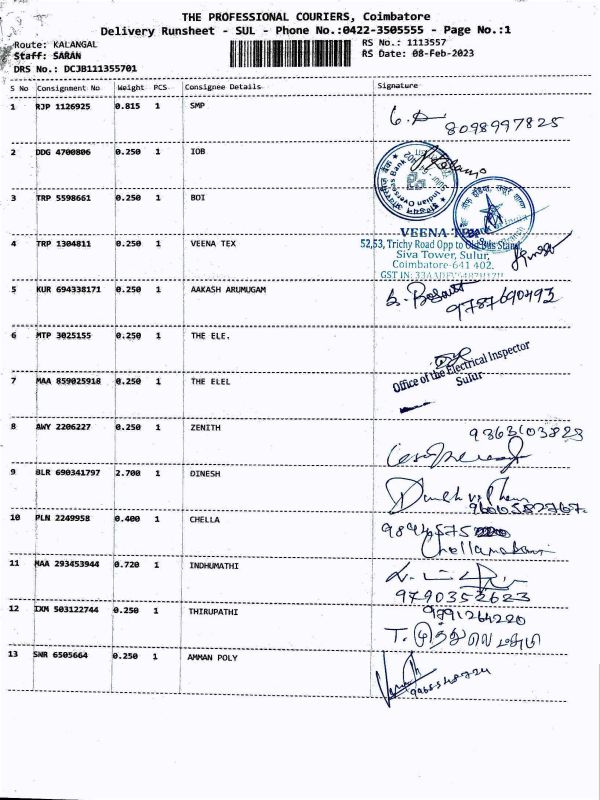 THE PROFESSIONAL COURIERS, Coimbatore
Delivery Runsheet - SUL - Phone No.:0422-3505555 - Page No.:1
Route: KALANGAL
RS No.: 1113557
Staff: SARAN
RS Date: 08-Feb-2023
DRS No.: DCJB111355701
S No Consignment No Weight PCS Consignee Details Signature
1 RJP 1126925 0.815 1 SMP
8098997825
2 DDG 4700806 0.250 1 IOB
Indian Overseas Bank
3 TRP 5598661 0.250 1 BOI
VEENA TEX
4 TRP 1304811 0.250 1 VEENA TEX
52,53, Trichy Road Opp to Old Bus Stand,
Siva Tower, Sulur,
Coimbatore-641 402.
5 KUR 694338171 0.250 1 AAKASH ARUMUGAM
9787690493
6 MTP 3025155 0.250 1 THE ELE.
Office of the Electrical Inspector
Sulur
7 MAA 859025918 0.250 1 THE ELEL
8 AWY 2206227 0.250 1 ZENITH
9363103823
9 BLR 690341797 2.700 1 DINESH
10 PLN 2249958 0.400 1 CHELLA
11 MAA 293453944 0.720 1 INDHUMATHI
9790352623
12 IXM 503122744 0.250 1 THIRUPATHI
9791264220
13 SNR 6505664 0.250 1 AMMAN POLY